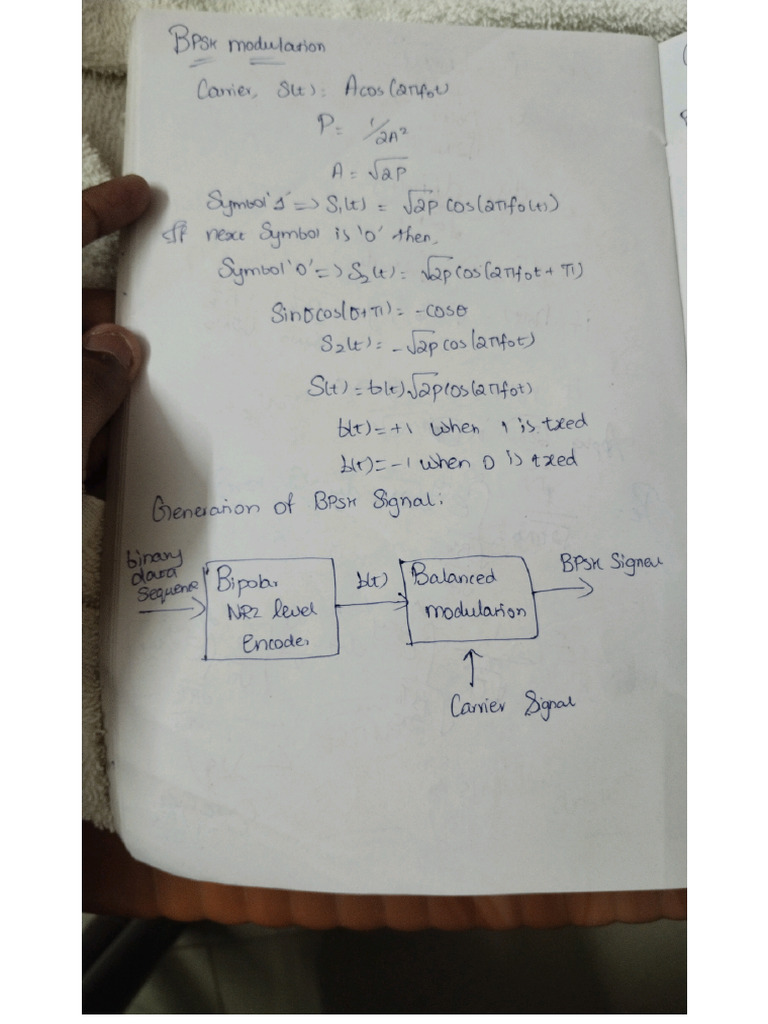 BPSK modulation
Carrier, S(t) = A cos(2πf₀t)
P = 1/2A²
A = √2P
Symbol '1' => S₁(t) = √2P cos(2πf₀(t))
If next Symbol is '0' then,
Symbol '0' => S₂(t) = √2P cos(2πf₀t + π)
Sinθcos(θ+π) = -cosθ
S₂(t) = -√2P cos(2πf₀t)
S(t) = b(t)√2P cos(2πf₀t)
b(t) = +1 when 1 is txed
b(t) = -1 when 0 is txed
Generation of BPSK Signal:
binary
data
sequence
Bipolar
NRZ level
Encoder
b(t)
Balanced
modulation
BPSK Signal
Carrier Signal